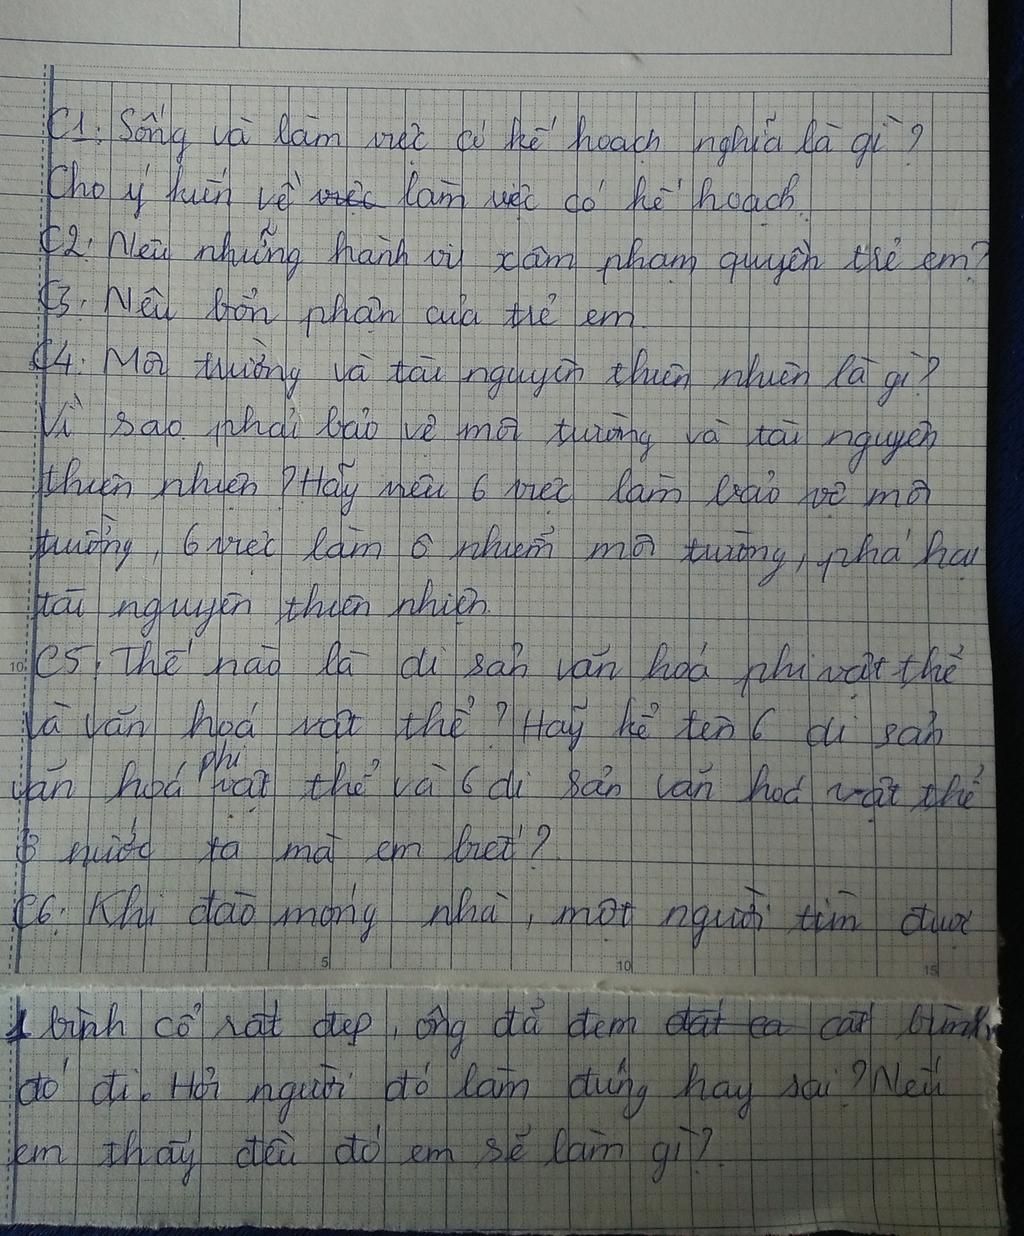 C1: Sống và làm việc có kế hoạch nghĩa là gì?
Cho ý kiến về việc làm việc có kế hoạch.
C2: Nêu những hành vi xâm phạm quyền trẻ em?
C3: Nêu bổn phận của trẻ em.
C4: Môi trường và tài nguyên thiên nhiên là gì?
Vì sao phải bảo vệ môi trường và tài nguyên
thiên nhiên? Hãy nêu 6 việc làm bảo vệ môi
trường, 6 việc làm ô nhiễm môi trường, phá hại
tài nguyên thiên nhiên.
10 C5: Thế nào là di sản văn hoá phi vật thể
và văn hoá vật thể? Hãy kể tên 6 di sản
văn hoá phi vật thể và 6 di sản văn hoá vật thể
ở nước ta mà em biết?
C6: Khi đào móng nhà, một người tìm được
5 10 15
1 bình cổ rất đẹp, ông đã đem đất ca cất bình
đó đi. Hỏi người đó làm đúng hay sai? Nếu
em thấy điều đó em sẽ làm gì?